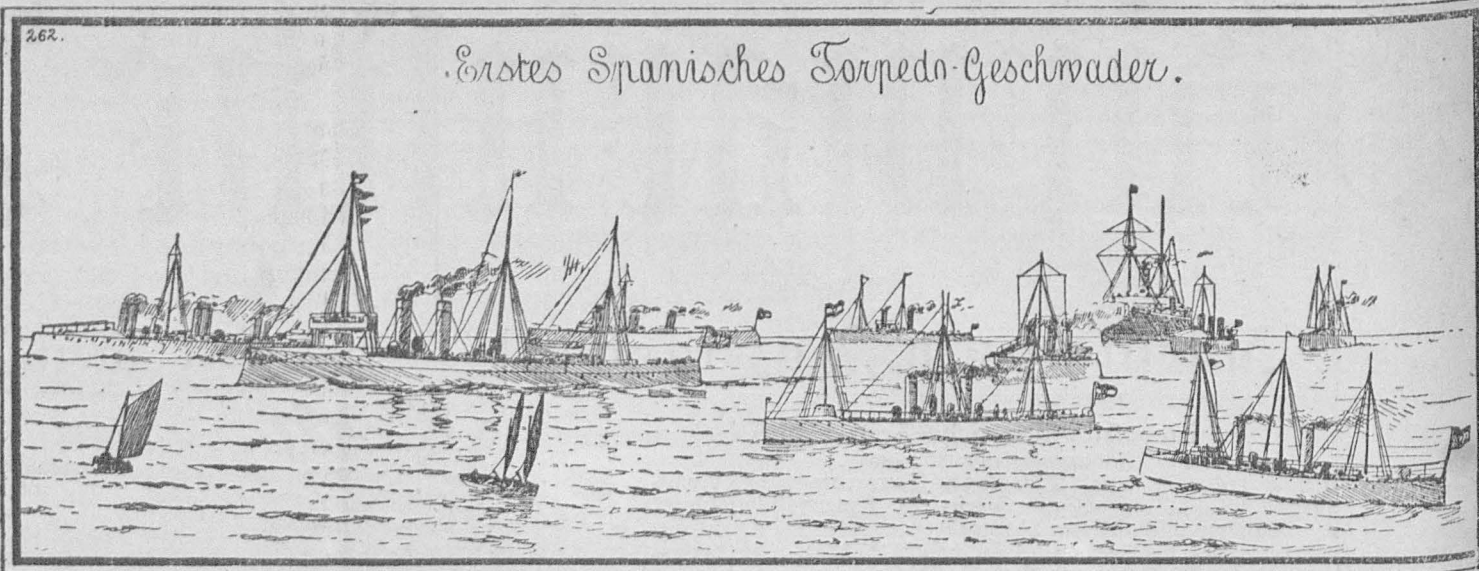 262.
Erstes Spanisches Torpedo-Geschwader.